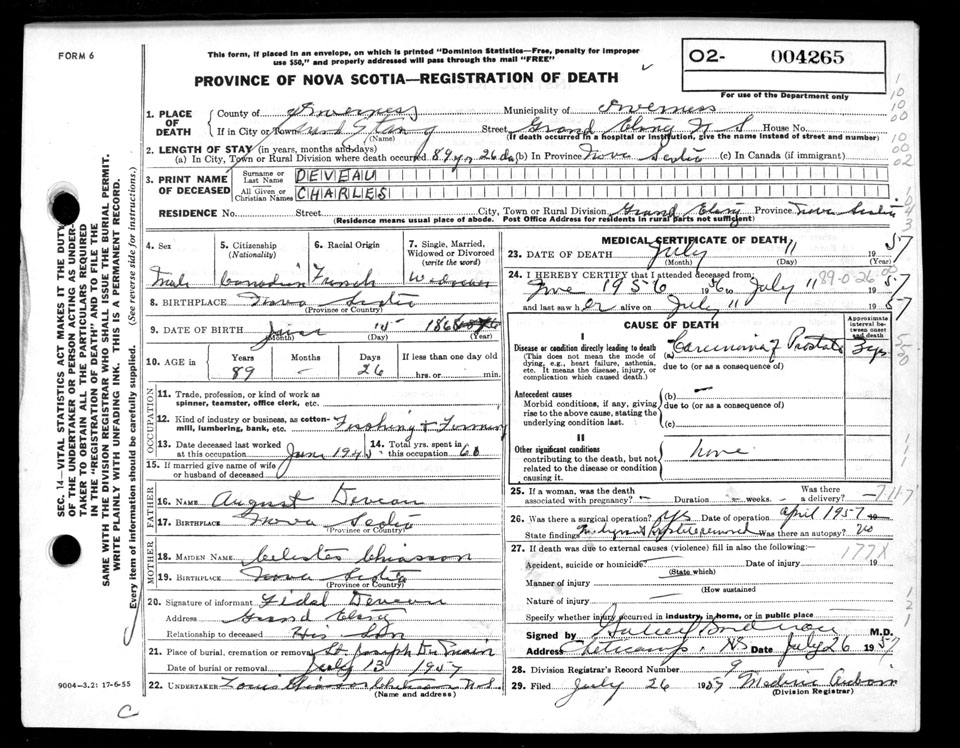 FORM 6
This form, if placed in an envelope, on which is printed "Dominion Statistics—Free, penalty for improper
use $50," and properly addressed will pass through the mail "FREE"
PROVINCE OF NOVA SCOTIA—REGISTRATION OF DEATH
O2- 004265
For use of the Department only
1. PLACE OF DEATH
County of Inverness Municipality of Inverness
If in City or Town Street Grand Etang N S House No.
(Name) (If death occurred in a hospital or institution, give the name instead of street and number)
2. LENGTH OF STAY (in years, months and days)
(a) In City, Town or Rural Division where death occurred 89 yr 26 da (b) In Province Nova Scotia (c) In Canada (if immigrant)
3. PRINT NAME OF DECEASED
Surname or Last Name DEVEAU
All Given or Christian Names CHARLES
RESIDENCE No. Street City, Town or Rural Division Grand Etang Province Nova Scotia
(Residence means usual place of abode. Post Office Address for residents in rural parts not sufficient)
4. Sex
Male
5. Citizenship
(Nationality)
Canadian
6. Racial Origin
French
7. Single, Married,
Widowed or Divorced
(write the word)
Widower
8. BIRTHPLACE Nova Scotia
(Province or Country)
9. DATE OF BIRTH June 15 186
(Month) (Day) (Year)
10. AGE in
Years Months Days If less than one day old
89 — 26 hrs. or min.
OCCUPATION
11. Trade, profession, or kind of work as
spinner, teamster, office clerk, etc.
12. Kind of industry or business, as cotton-
mill, lumbering, bank, etc. Fishing & Farming
13. Date deceased last worked
at this occupation June 194
14. Total yrs. spent in
this occupation 60
15. If married give name of wife
or husband of deceased
FATHER
16. NAME August Deveau
17. BIRTHPLACE Nova Scotia
(Province or Country)
MOTHER
18. MAIDEN NAME Celeste Chiasson
19. BIRTHPLACE Nova Scotia
(Province or Country)
20. Signature of informant Fidel Deveau
Address Grand Etang
Relationship to deceased His Son
21. Place of burial, cremation or removal St. Joseph Du Moine
Date of burial or removal July 13 1957
22. UNDERTAKER Louis Chiasson Cheticamp N.S.
(Name and address)
MEDICAL CERTIFICATE OF DEATH
23. DATE OF DEATH July 11 1957
(Month) (Day)
24. I HEREBY CERTIFY that I attended deceased from:
June 1956 1956 to July 11 1957
89-0-26
and last saw h er alive on July 11 1957
CAUSE OF DEATH
Approximate interval between onset and death
I
Disease or condition directly leading to death
(This does not mean the mode of
dying, e.g., heart failure, asthenia,
etc. It means the disease, injury, or
complication which caused death.)
(a) Carcinoma of Prostate
due to (or as a consequence of)
Antecedent causes
Morbid conditions, if any, giving
rise to the above cause, stating the
underlying condition last.
(b) —
due to (or as a consequence of)
(c)
II
Other significant conditions
contributing to the death, but not
related to the disease or condition
causing it.
None
25. If a woman, was the death
associated with pregnancy? — Duration — weeks. — Was there
a delivery? —
26. Was there a surgical operation? yes Date of operation April 1957 19
State findings Was there an autopsy? No
27. If death was due to external causes (violence) fill in also the following:—
177X
Accident, suicide or homicide Date of injury 19
(State which)
Manner of injury
(How sustained
Nature of injury —
Specify whether injury occurred in industry, in home, or in public place
Signed by M.D.
Address Cheticamp, NS Date July 26 1957
28. Division Registrar's Record Number 9
29. Filed July 26 1957
(Division Registrar)
9004-3.2: 17-6-55
C
SEC. 14—VITAL STATISTICS ACT MAKES IT THE DUTY
OF THE UNDERTAKER OR PERSON ACTING AS UNDER-
TAKER TO OBTAIN ALL THE PARTICULARS REQUIRED
IN THE "REGISTRATION OF DEATH" AND TO FILE THE
SAME WITH THE DIVISION REGISTRAR WHO SHALL ISSUE THE BURIAL PERMIT.
WRITE PLAINLY WITH UNFADING INK. THIS IS A PERMANENT RECORD.
Every item of information should be carefully supplied. (See reverse side for instructions.)